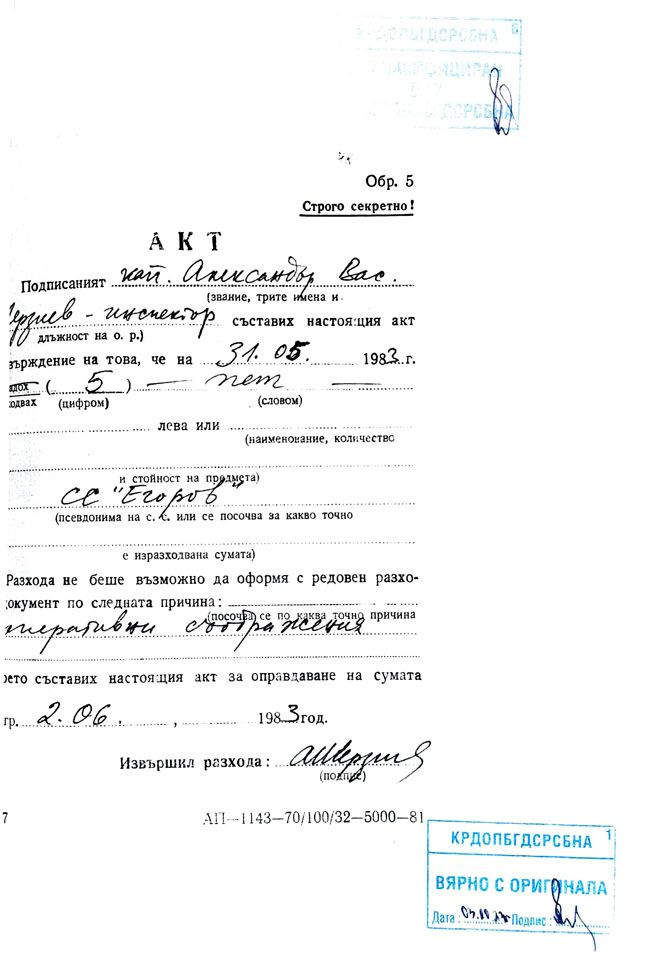 КРДОПБГДСРСБНА 6
Обр. 5
Строго секретно!
АКТ
Подписаният кап. Александър Вас.
(звание, трите имена и
- инспектор съставих настоящия акт
длъжност на о. р.)
върждение на това, че на 31.05. 1983 г.
( 5 ) — пет —
(цифром) (словом)
лева или
(наименование, количество
и стойност на предмета)
СС "Егоров"
(псевдонима на с. с. или се посочва за какво точно
е изразходвана сумата)
Разхода не беше възможно да оформя с редовен разхо-
окумент по следната причина:
(посочва се по каква точно причина
оперативни съображения
ето съставих настоящия акт за оправдаване на сумата
гр. 2.06. , 1983 год.
Извършил разхода:
(подпис)
7 АП—1143—70/100/32—5000—81
КРДОПБГДСРСБНА 1
ВЯРНО С ОРИГИНАЛА
Дата: Подпис: